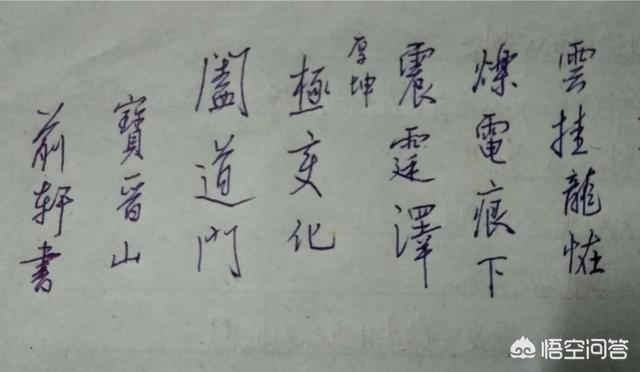 雲挂龍恠
爍電痕下
震霆澤
厚坤
極变化
闔道門
寶晋山
前軒書
悟空问答